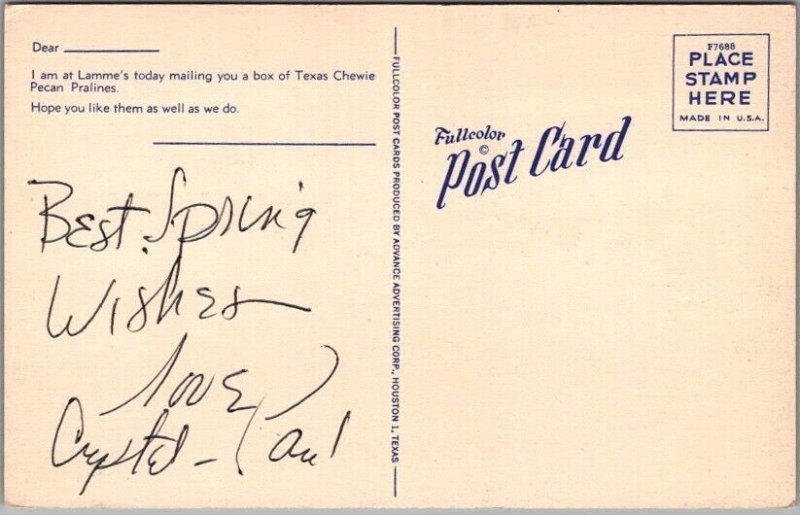 Dear
I am at Lamme's today mailing you a box of Texas Chewie
Pecan Pralines.
Hope you like them as well as we do.
Best Spring
Wishes
Love
Crystel - Paul
FULLCOLOR POST CARDS PRODUCED BY ADVANCE ADVERTISING CORP., HOUSTON 1, TEXAS
Fullcolor
©
Post Card
F7688
PLACE
STAMP
HERE
MADE IN U.S.A.